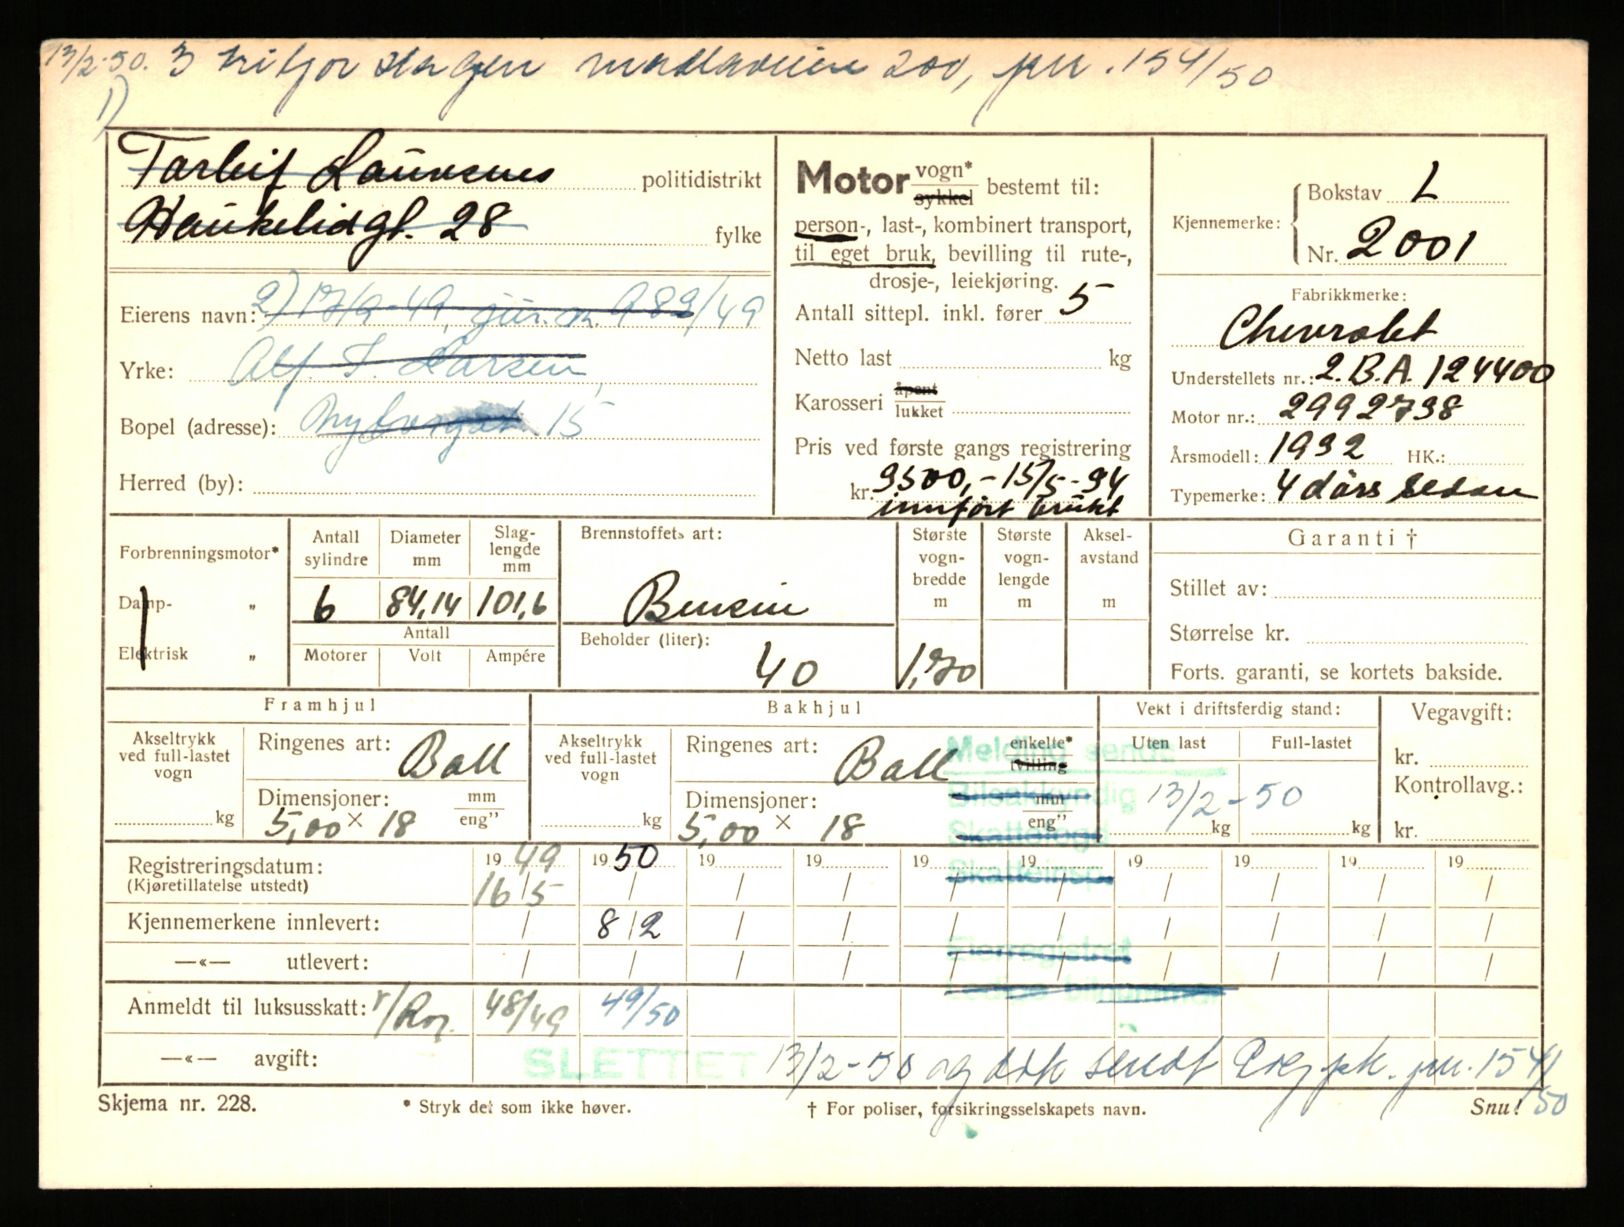 13/2-50. 3 madlaveien 200, jnr. 1541/50
1)
Torleif Lauvsnes politidistrikt
Haukelidgt. 28 fylke
Eierens navn: 2) 17/9-49, jur. nr. 982/49
Yrke: Alf. T. Larsen,
Bopel (adresse): Nyborgat. 15
Herred (by):
Motor vogn* sykkel bestemt til:
person-, last-, kombinert transport,
til eget bruk, bevilling til rute-,
drosje-, leiekjøring.
Antall sittepl. inkl. fører 5
Netto last kg
Karosseri åpent lukket
Pris ved første gangs registrering
kr. 9500,- 15/5-34
innført brukt
Kjennemerke: Bokstav L
Nr. 2001
Fabrikkmerke:
Chevrolet
Understellets nr.: 2.B.A. 124400
Motor nr.: 2992798
Årsmodell: 1932 HK.:
Typemerke: 4 dørs Sedan
Forbrenningsmotor*
Damp- „
Elektrisk „
Antall sylindre 6
Diameter mm 84,14
Slag-lengde mm 101,6
Antall
Motorer Volt Ampére
Brennstoffets art:
Bensin
Beholder (liter):
40
Største vogn-bredde m 1,70
Største vogn-lengde m
Aksel-avstand m
Garanti †
Stillet av:
Størrelse kr.
Forts. garanti, se kortets bakside.
Framhjul
Akseltrykk ved full-lastet vogn kg
Ringenes art: Ball
Dimensjoner: mm eng"
5,00 × 18
Bakhjul
Akseltrykk ved full-lastet vogn kg
Ringenes art: Ball enkelte* tvilling
Dimensjoner: mm eng"
5,00 × 18
Vekt i driftsferdig stand:
Uten last Full-lastet
kg kg
Vegavgift:
kr.
Kontrollavg.:
kr.
Melding sendt
Bilsakkyndig 13/2-50
Skattefogd
Skatteinsp.
Eierregistret
Registreringsdatum: 19 49 19 50 19 19 19 19 19 19 19 19
(Kjøretillatelse utstedt) 16/5 / / / / / / / / /
Kjennemerkene innlevert: / 8/2 / / / / / / / /
—«— utlevert: / / / / / / / / / /
Anmeldt til luksusskatt: 48/49 49/50
—«— avgift: SLETTET 13/2-50 og sendt jnr. 1541/50
Skjema nr. 228. * Stryk det som ikke høver. † For poliser, forsikringsselskapets navn. Snu!